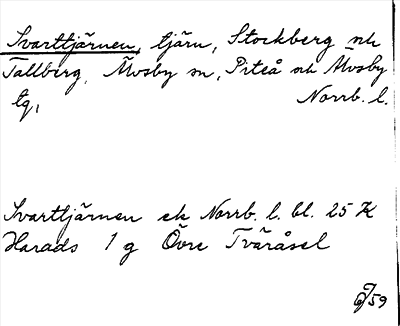 Svarttjärnen, tjärn, Stockberg och
Tallberg, Älvsby sn, Piteå och Älvsby
tg, Norrb. l.
Svarttjärnen ek Norrb. l. bl. 25 K
Harads 1 g Övre Tväråsel
59